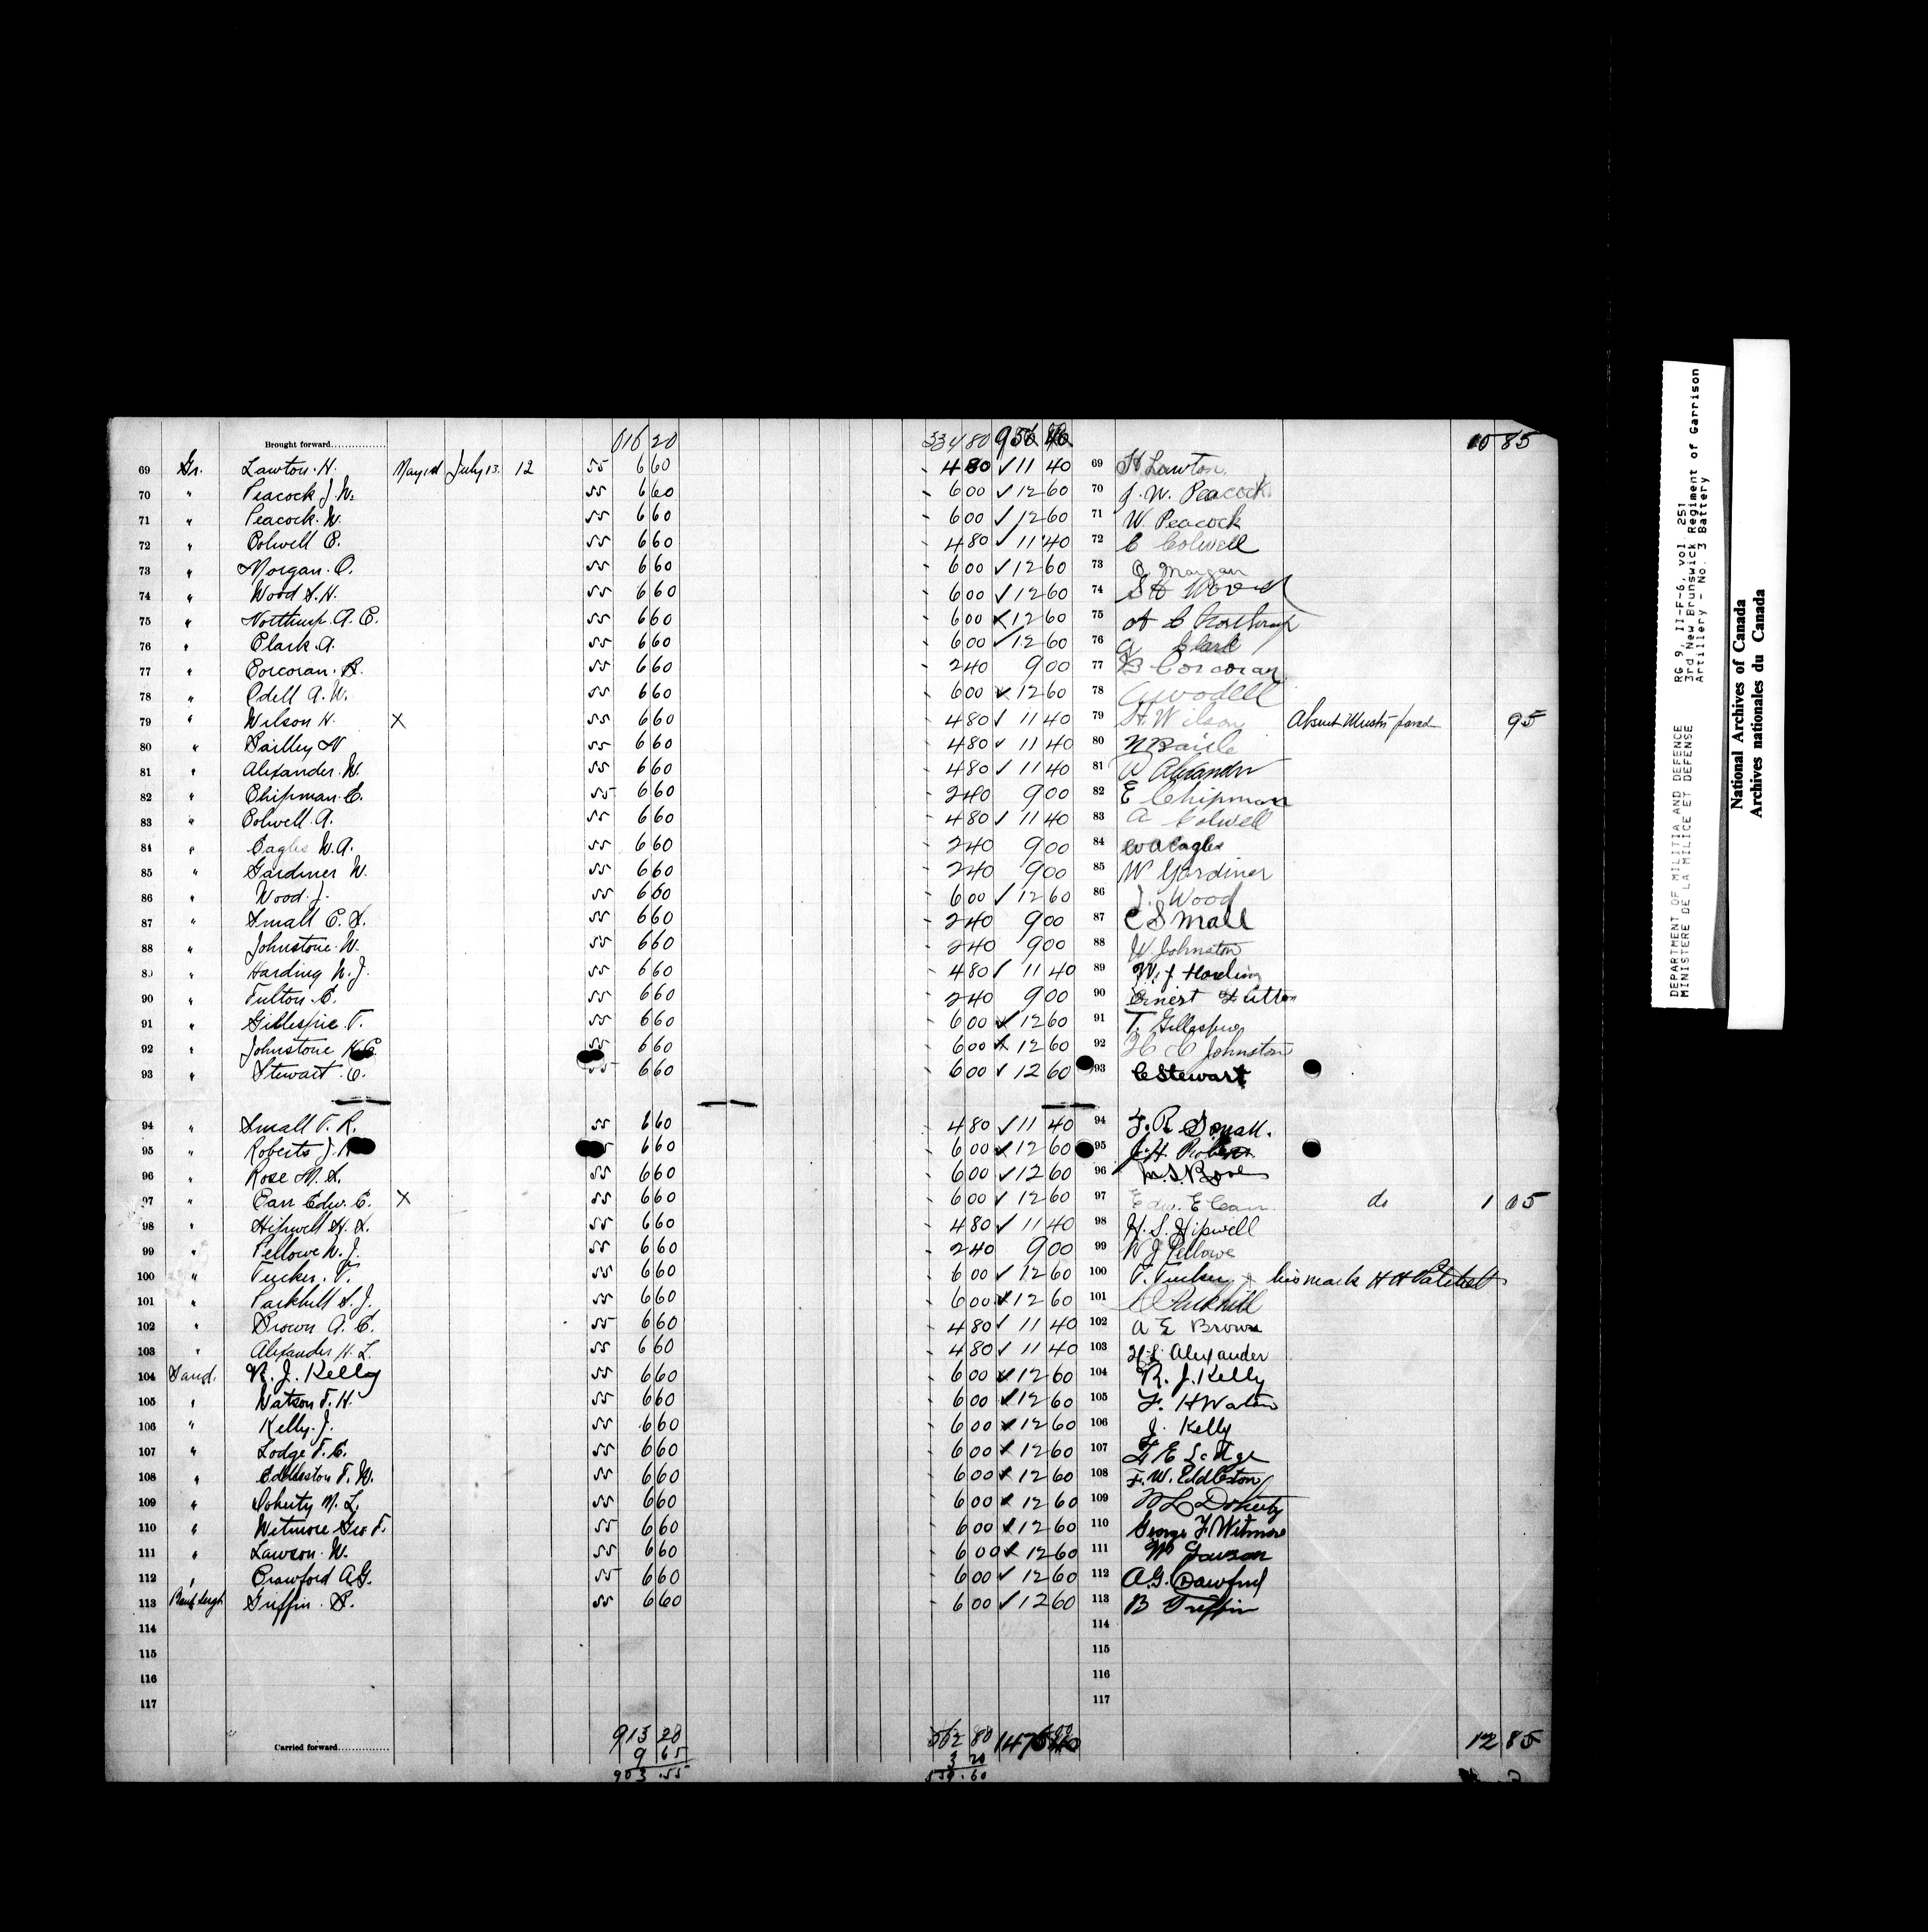 Brought forward 616 20 334 80 956 40 10 85
69 Gr. Lawton. H. May 1st July 13. 12 55 6 60 4 80 ✓ 11 40 69 H Lawton
70 " Peacock J. W. 55 6 60 6 00 ✓ 12 60 70 J. W. Peacock
71 " Peacock. W. 55 6 60 6 00 ✓ 12 60 71 W. Peacock
72 " Colwell C. 55 6 60 4 80 ✓ 11 40 72 C Colwell
73 " Morgan. O. 55 6 60 6 00 ✓ 12 60 73 O Morgan
74 " Wood S. H. 55 6 60 6 00 ✓ 12 60 74 S H Wood
75 " Northrup. A. C. 55 6 60 6 00 ✓ 12 60 75 A C Northrup
76 " Clark. A. 55 6 60 6 00 ✓ 12 60 76 A Clark
77 " Corcoran. B. 55 6 60 2 40 9 00 77 B Corcoran
78 " Odell A. W. 55 6 60 6 00 ✓ 12 60 78 A W Odell
79 " Wilson H. X 55 6 60 4 80 ✓ 11 40 79 H. Wilson Absent Muster parade 95
80 " Bailley N 55 6 60 4 80 ✓ 11 40 80 N Baile
81 " Alexander. W. 55 6 60 4 80 ✓ 11 40 81 W Alexander
82 " Chipman. E. 55 6 60 2 40 9 00 82 E Chipman
83 " Colwell. A. 55 6 60 4 80 ✓ 11 40 83 A Colwell
84 " Eagles W. A. 55 6 60 2 40 9 00 84 W A Eagles
85 " Gardiner W. 55 6 60 2 40 9 00 85 W Gardiner
86 " Wood. J. 55 6 60 6 00 ✓ 12 60 86 J. Wood
87 " Small C. S. 55 6 60 2 40 9 00 87 C S Mall
88 " Johnstone. W. 55 6 60 2 40 9 00 88 W Johnston
89 " Harding W. J. 55 6 60 4 80 ✓ 11 40 89 W. J Harding
90 " Fulton. E. 55 6 60 2 40 9 00 90 Ernest
91 " Gillespie. T. 55 6 60 6 00 ✓ 12 60 91 T. Gillespie
92 " Johnstone H. C. 55 6 60 6 00 ✓ 12 60 92 H C Johnston
93 " Stewart. C. 55 6 60 6 00 ✓ 12 60 93 C Stewart
94 " Small F. R. 55 6 60 4 80 ✓ 11 40 94 F. R. Small.
95 " Roberts J. H 55 6 60 6 00 ✓ 12 60 95 J. H. Roberts
96 " Rose M. S. 55 6 60 6 00 ✓ 12 60 96 M. S. Rose
97 " Carr Edw. E. X 55 6 60 6 00 ✓ 12 60 97 Edw. E Carr do 1 05
98 " Hipwell H. S. 55 6 60 4 80 ✓ 11 40 98 H. S. Hipwell
99 " Pellowe W. J. 55 6 60 2 40 9 00 99 W J Pellowe
100 " Tucker. T. 55 6 60 6 00 ✓ 12 60 100 T. Tucker x his mark H H
101 " Parkhill S. J. 55 6 60 6 00 ✓ 12 60 101 Parkhill
102 " Brown A. E. 55 6 60 4 80 ✓ 11 40 102 A E Brown
103 " Alexander H. L. 55 6 60 4 80 ✓ 11 40 103 H L Alexander
104 Band. R. J. Kelly 55 6 60 6 00 ✓ 12 60 104 R. J. Kelly
105 " Watson F. H. 55 6 60 6 00 ✓ 12 60 105 F. H Watson
106 " Kelly. J. 55 6 60 6 00 ✓ 12 60 106 J. Kelly
107 " Lodge F. E. 55 6 60 6 00 ✓ 12 60 107 F E Lodge
108 " Eddleston F. W. 55 6 60 6 00 ✓ 12 60 108 F. W. Eddleston
109 " Doherty M. L. 55 6 60 6 00 ✓ 12 60 109 M L Doherty
110 " Wetmore Geo F. 55 6 60 6 00 ✓ 12 60 110 George F Wetmore
111 " Lawson. W. 55 6 60 6 00 ✓ 12 60 111 W Lawson
112 " Crawford A. G. 55 6 60 6 00 ✓ 12 60 112 A. G. Crawford
113 Griffin. B. 55 6 60 6 00 ✓ 12 60 113 B Griffin
114 114
115 115
116 116
117 117
Carried forward 913 20 562 80 12 85
9 65 3 20
903 .55 559.60
DEPARTMENT OF MILITIA AND DEFENCE RG 9, II-F-6, vol. 251
MINISTERE DE LA MILICE ET DEFENSE 3rd New Brunswick Regiment of Garrison
Artillery - No. 3 Battery
National Archives of Canada
Archives nationales du Canada